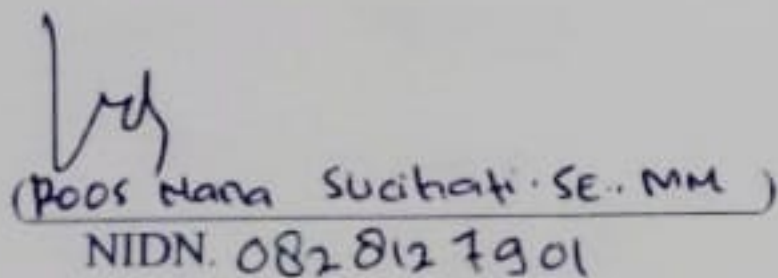 (Roos Nana Sucihati. SE., MM )
NIDN. 0828127901